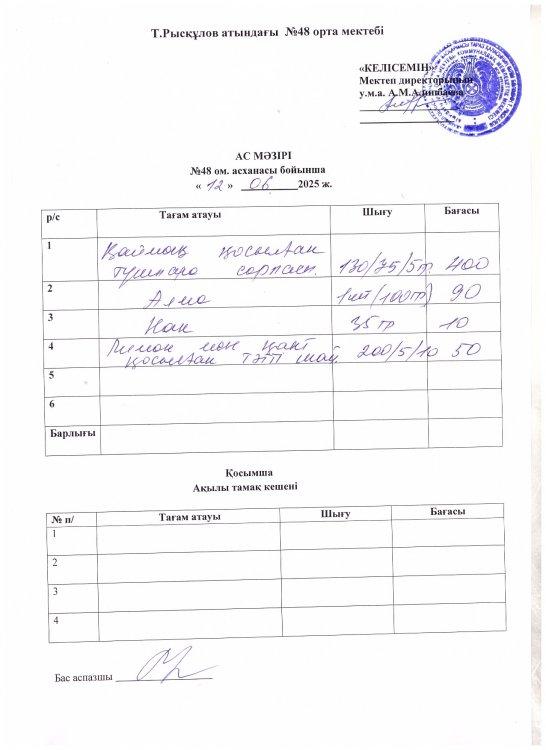 Т.Рысқұлов атындағы №48 орта мектебі
«КЕЛІСЕМІН»
Мектеп директорының
у.м.а. А.М.
АС МӘЗІРІ
№48 ом. асханасы бойынша
« 12 » 06 2025 ж.
р/с Тағам атауы Шығу Бағасы
1 Қаймақ қосылған
тұшпара сорпасы. 130/75/5гр 400
2 Алма 1шт(100гр) 90
3 Нан 35 гр 10
4 Лимон мен қант
қосылған тәтті шай. 200/5/10 50
5
6
Барлығы
Қосымша
Ақылы тамақ кешені
№ п/ Тағам атауы Шығу Бағасы
1
2
3
4
Бас аспазшы